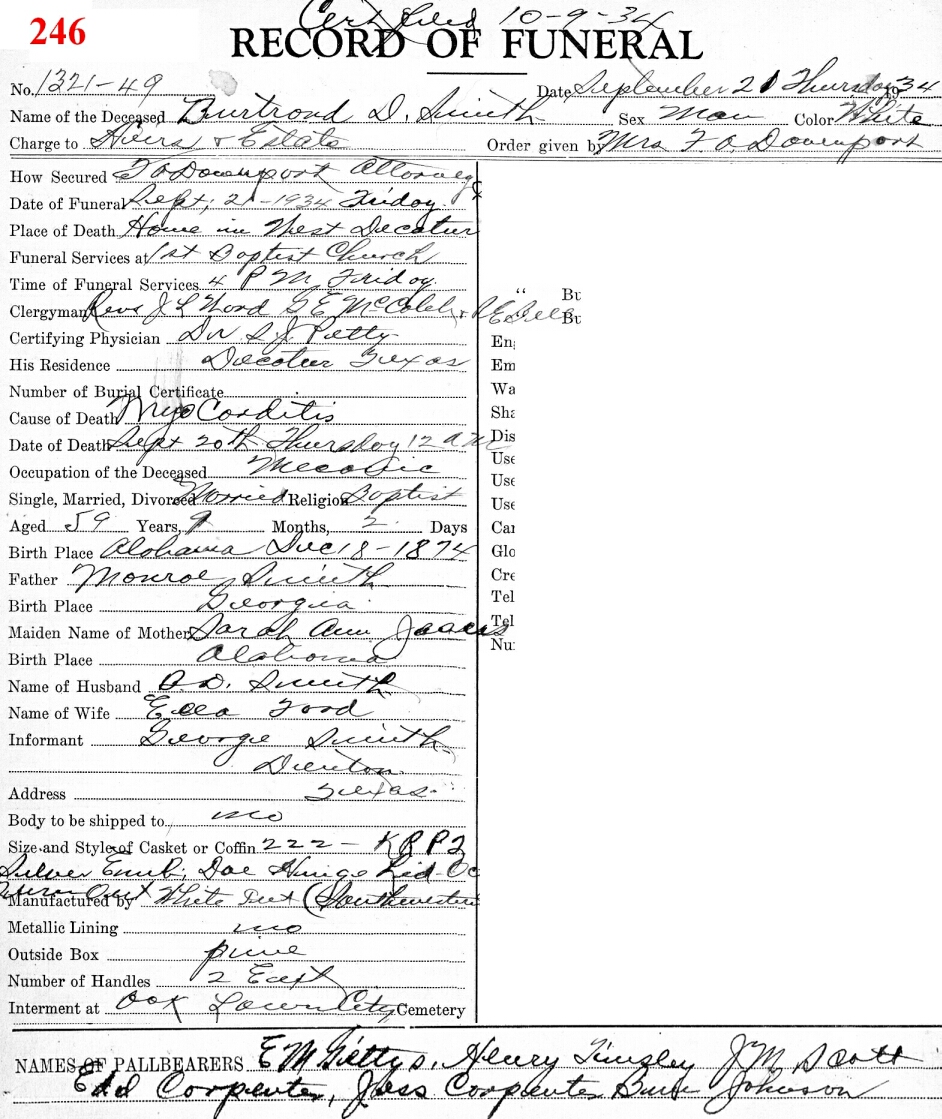 Cert filed 10-9-34
246
RECORD OF FUNERAL
No. 1321-49 Date September 21 Thursday 1934
Name of the Deceased Burtrond D. Smith Sex Man Color White
Charge to Heirs & Estate Order given by Mrs F O Davenport
How Secured F O Davenport Attorney
Date of Funeral Sept, 21-1934 Friday.
Place of Death Home in West Decatur
Funeral Services at 1st Baptist Church
Time of Funeral Services 4 P M, Friday.
Clergyman Revs J L Word G E McColeb & 
" Bu
Bu
Certifying Physician Dr S. J. Petty
En
His Residence Decatur Texas
Em
Number of Burial Certificate
Wa
Cause of Death Myo Corditis
Sha
Date of Death Sept 20th Thursday 12 a m
Dis
Occupation of the Deceased Mecanic
Use
Single, Married, Divorced Married Religion Baptist
Use
Use
Aged 59 Years, 9 Months, 2 Days
Car
Birth Place Alabama Dec 18-1874
Glo
Father Monroe Smith
Cre
Birth Place Georgia
Tel
Maiden Name of Mother Sarah Ann
Tel
Birth Place Alabama
Nu
Name of Husband B.D. Smith
Name of Wife Ella Ford
Informant George Smith
Denton
Address Texas
Body to be shipped to no
Size and Style of Casket or Coffin 222-
Silver Emb. Doe Hinge Lid
Manufactured by White (Southwestern
Metallic Lining no
Outside Box pine
Number of Handles 2 East
Interment at Oak Lawn City Cemetery
NAMES OF PALLBEARERS E M Gettys, Henry Tinsley J.M. Scott
Edd Carpenter, Jess Carpenter Burr Johnson